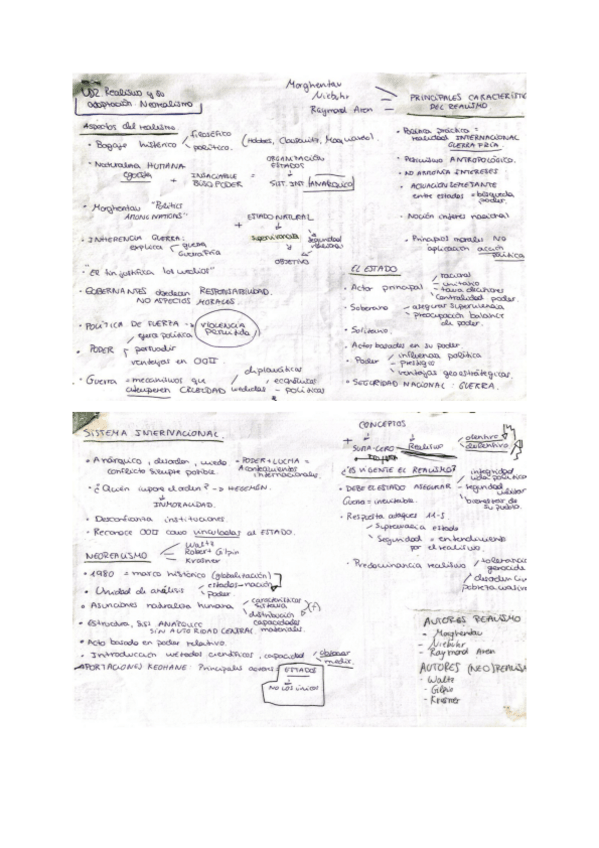 UD2. Realismo y su
adaptación. Neorrealismo
Morghentau
Niebuhr
Raymond Aron
PRINCIPALES CARACTERÍSTIC
DEL REALISMO
Aspectos del realismo.
• Bagaje histórico
filosófico
político.
• Naturaleza HUMANA
egoísta
+ INSACIABLE
BÚSQ PODER
=
ORGANIZACIÓN
ESTADOS
SIST. INT. ANÁRQUICO
• Morghentau "Politics
AMONG NATIONS"
+ ESTADO NATURAL
supervivencia
seguridad
OBJETIVO
• INHERENCIA GUERRA:
explica
guerra
Guerra Fría
• "El fin justifica los medios"
• GOBERNANTES RESPONSABILIDAD.
NO ASPECTOS MORALES.
• POLÍTICA DE FUERZA →
VIOLENCIA
PERMITIDA
• PODER
persuadir
ventajas en OOII
• Guerra = mecanismos que
medidas
diplomáticas
económicas
políticas
realidad INTERNACIONAL
GUERRA FRÍA.
• Pesimismo ANTROPOLÓGICO.
• NO ARMONÍA INTERESES
• ACTUACIÓN SEMEJANTE
entre estados = búsqueda
poder.
• Noción interés nacional
• Principios morales NO
aplicación acción
política
EL ESTADO
• Actor principal
racional
unitario
toma decisiones
centralidad poder.
• Soberano
asegurar supervivencia
preocupación balance
de poder.
• Solitario.
• Actos basados en su poder
• Poder
influencia política
prestigio
ventajas geoestratégicas.
• SEGURIDAD NACIONAL: GUERRA.
SISTEMA INTERNACIONAL.
• Anárquico, desorden, miedo
conflicto siempre posible.
• PODER + LUCHA =
Acontecimientos
internacionales.
• ¿Quién impone el orden? → HEGEMÓN.
INMORALIDAD.
• Desconfianza instituciones.
• Reconoce OOII como vinculadas al ESTADO.
NEOREALISMO
Waltz
Robert Gilpin
Krasner
• 1980 = marco histórico (globalización)
• Unidad de análisis
estados-nación
poder.
• Asunciones naturaleza humana
características
sistema
distribución
capacidades
materiales.
(+)
• Estructura, SISI ANÁRQUIC
SIN AUTORIDAD CENTRAL
• Acto basado en poder relativo.
• Introducción métodos científicos, capacidad
observar
medir.
APORTACIONES KEOHANE: Principales actores:
ESTADOS
NO LOS ÚNICOS
CONCEPTOS
+ SUMA-CERO
Realismo
ofensivo
defensivo
¿ES VIGENTE EL REALISMO?
• DEBE EL ESTADO ASEGURAR
integridad
vida política
seguridad
militar
bienestar de
su pueblo.
Guerra = inevitable.
• Respuesta ataques 11-S
Supremacía estado
Seguridad = entendimiento
por el realismo.
• Predominancia realismo
tolerancia
genocida
AUTORES REALISMO
- Morghentau
- Niebuhr
- Raymond Aron
AUTORES (NEO)REALISM
- Waltz
- Gilpin
- Krasner